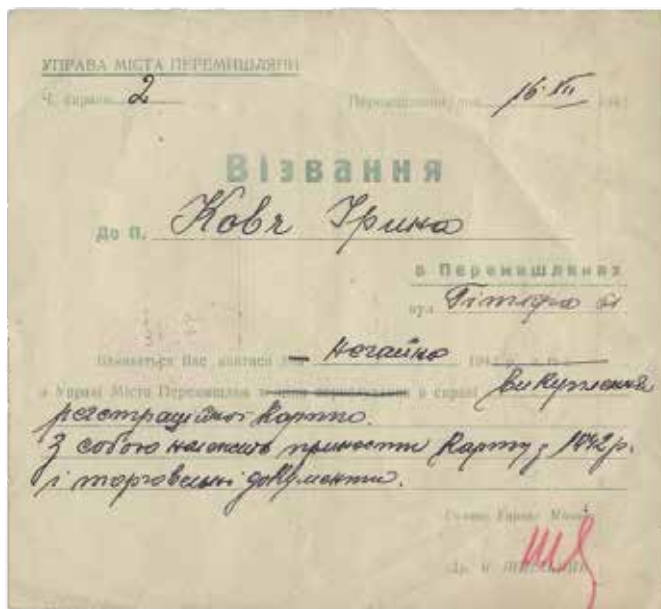 УПРАВА МІСТА ПЕРЕМИШЛЯНИ
Ч. справи 2
Перемишляни, дня 16. VII 194
Візвання
До П. Ковч Ірина
в Перемишлянах
вул. Гітлера 61
Візвається Вас явитися дня негайно 194
в Управі Міста Перемишлян в справі викуплення
реєстраційної карти.
З собою належить принести карту з 1942 р.
і торговельні документи.
Голова Управи Міста
Др.